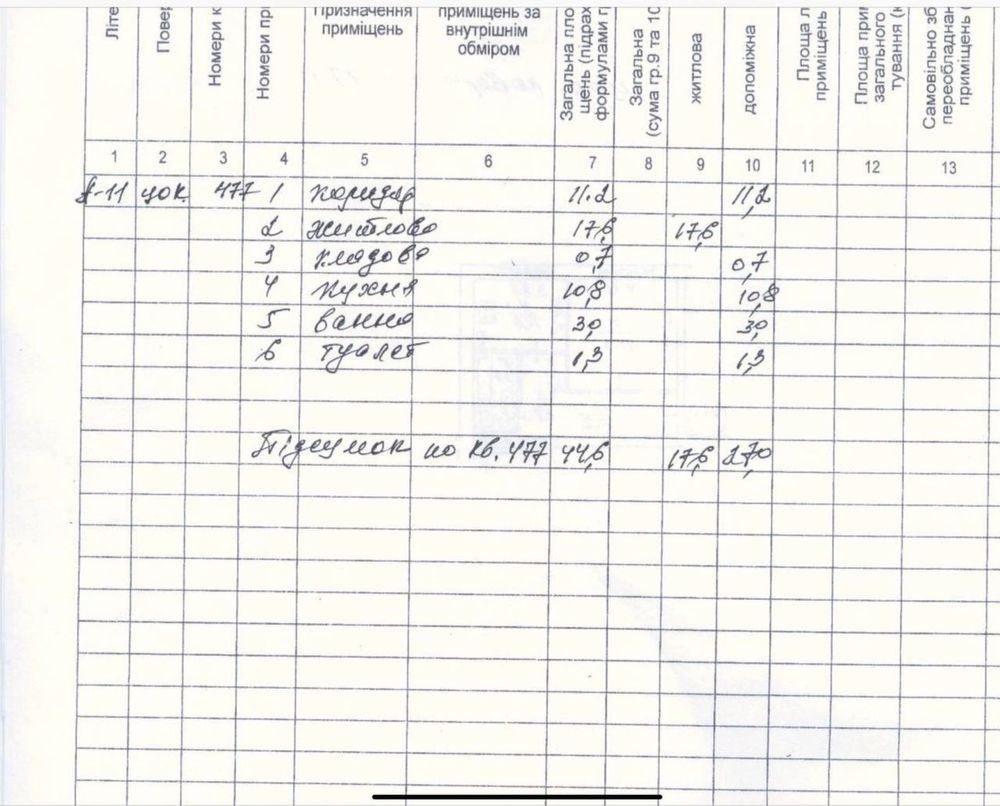 Літе
Повер
Номери к
Номери при
Призначення
приміщень
приміщень за
внутрішнім
обміром
Загальна пло
щень (підрах
формулами г
Загальна
(сума гр.9 та 10
житлова
допоміжна
Площа л
приміщень
Площа прим
загального
тування (к
Самовільно зб
переобладнан
приміщень (
1 2 3 4 5 6 7 8 9 10 11 12 13
цок 477 1 коридор 11.2 11,2
2 житлова 17,6 17,6
3 кладова 0,7 0,7
4 кухня 10,8 10,8
5 ванна 3,0 3,0
6 туалет 1,3 1,3
Підсумок по кв. 477 44,6 17,6 27,0